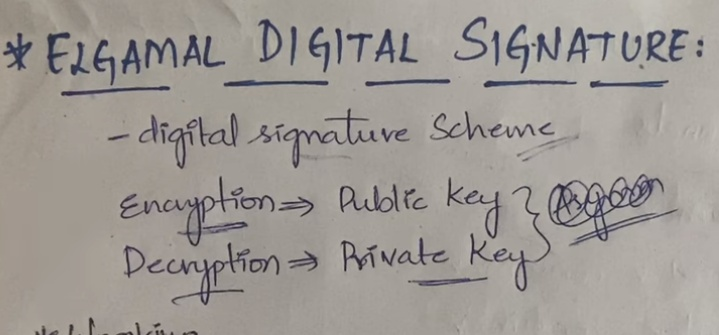 * ELGAMAL DIGITAL SIGNATURE:
- digital signature Scheme
Encryption ⇒ Public key }
Decryption ⇒ Private key